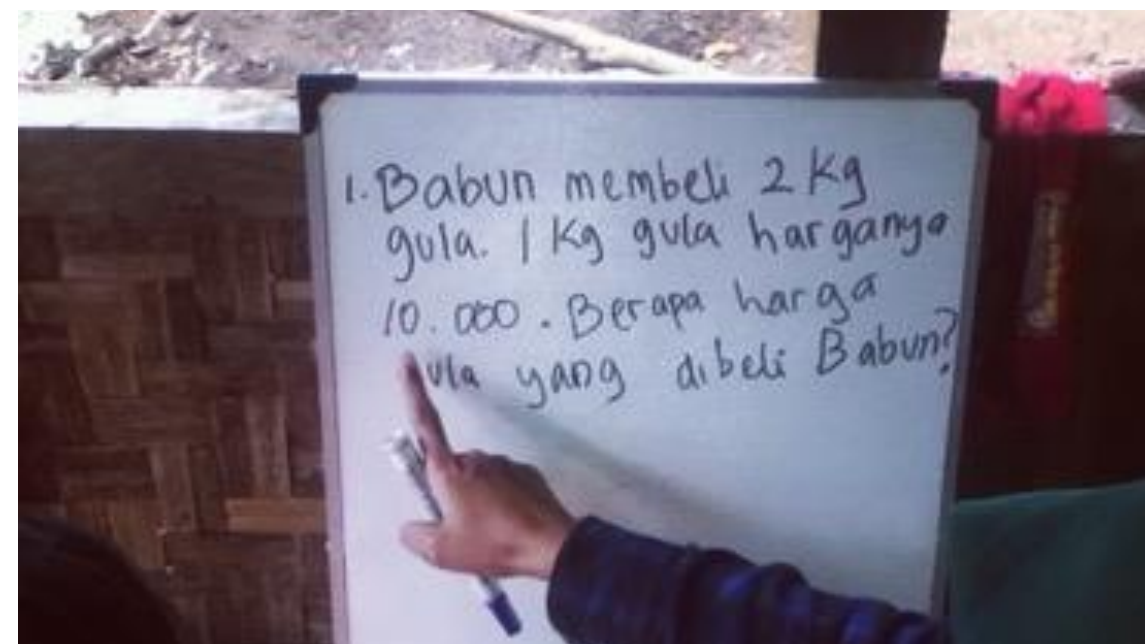 1. Babun membeli 2 Kg
gula. 1 Kg gula harganya
10.000. Berapa harga
gula yang dibeli Babun?